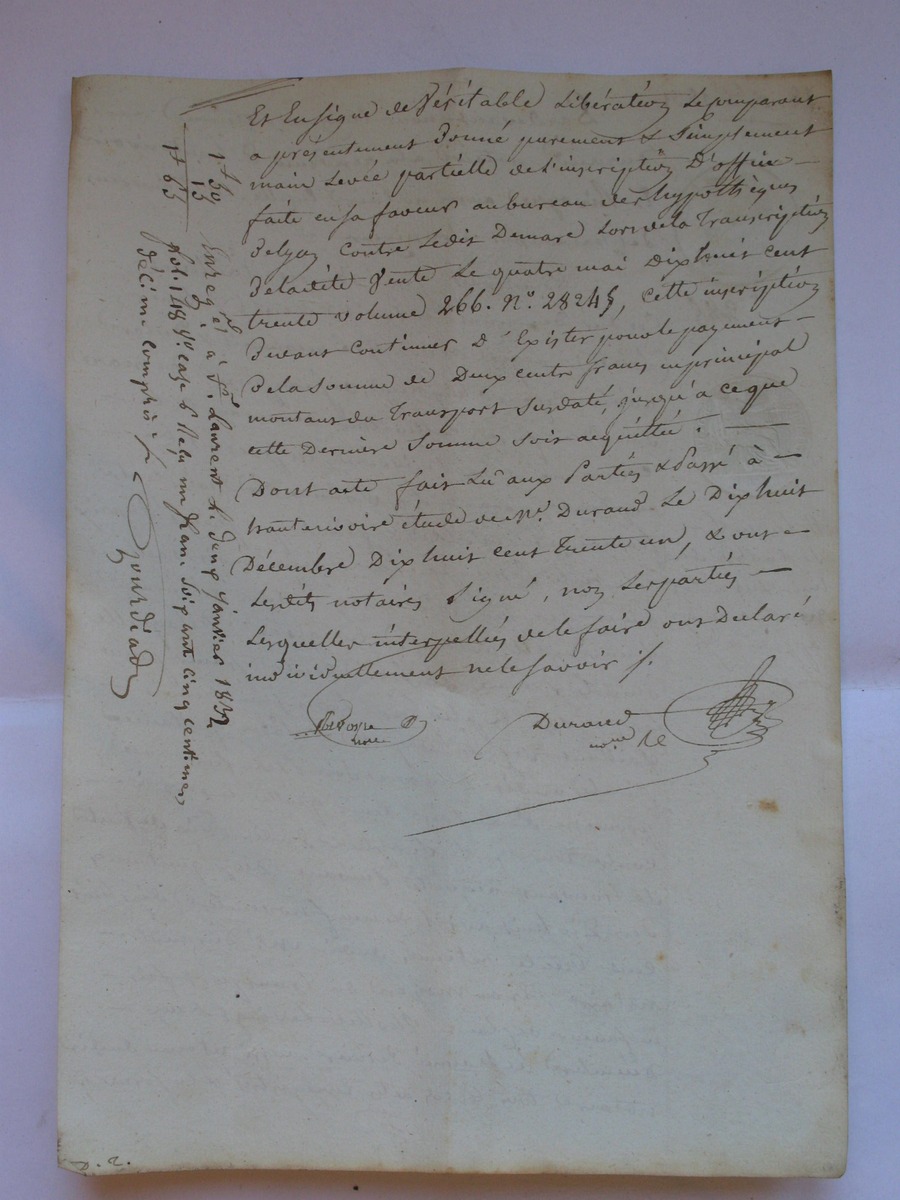 Et En signe de Véritable Libération Le comparant
a présentement Donné purement & Simplement
main Levée partielle de l'inscription D'office
faite en sa faveur au bureau des hypothèques
De Lyon Contre Ledit Demare Lors de la Transcription
De ladite Vente Le quatre mai Dix huit cent
trente volume 266. N° 28245, cette inscription
Devant Continuer D'Exister pour le payement
De la Somme de Deux cents francs en principal
montant du Transport Susdaté, jusqu'à ce que
cette Dernière Somme soit acquittée. —
Dont acte fait Lû aux Parties & Passé à
hauterivoire étude de Me. Durand Le Dix huit
Décembre Dix huit cent Trente un, & ont
Lesdits notaires Signé, non Les parties
Lesquelles interpellées de le faire ont Déclaré
individuellement ne le Savoir ./.
Durand
nore
1f 50
15
1f 65
Enregtré à St. Laurent le Janvier 1832
fol. 148 Vo. case 6 Reçu un franc soixante cinq centimes,
décime compris ./.
P. 2.